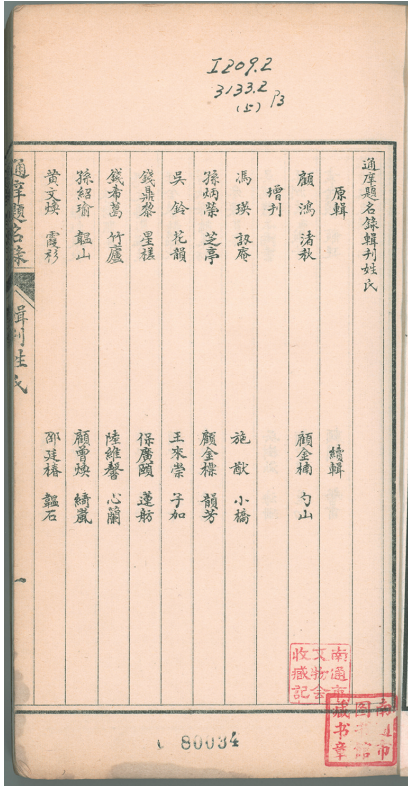 I209.2
3133.2
(上) P3
通庠題名錄輯刊姓氏
原輯
續輯
顧鴻 渚秋
顧金楠 勺山
增刊
馮瑛 訒庵
施猷 小橋
孫炳榮 芝亭
顧金標 韻芳
吳鈴 花韻
王來棠 子加
錢鼎黎 星槎
保廣頤 蓮舫
錢希葛 竹廬
陸維馨 心蘭
孫紹瑜 韞山
顧曾煥 綺嵐
黄文煥 霞衫
邵廷椿 韞石
通庠題名錄
輯刊姓氏
一
南通市
文物会
收臧記
南通市
图書館
藏书章
80034